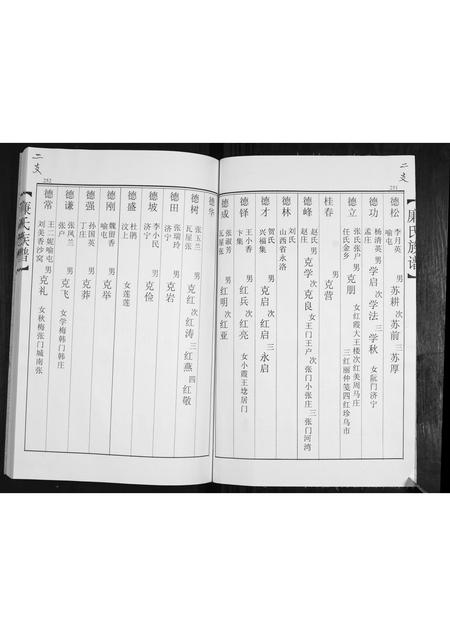 二支
251
廉氏族谱
德松 李月英 喻屯 男 苏耕 次 苏前 三 苏厚
德功 杨清英 孟庄 男 学启 次 学法 三 学秋 女阮门济宁
德立 张氏张户 任氏金乡 男 克朋 女红霞大王楼次红美周马庄 三红丽仲笺四红珍乌市
桂春 男 克营
德峰 赵氏 赵庄 男 克学 次 克良 女王门王户 次张门小张庄 三张门河湾
德林 刘氏 山西省永洛
德才 贺氏 兴福集 男 克启 次 红启 三 永启
德铎 王小香 卞集 男 红兵 次 红亮 女小霞王埝居门
德成 张淑芳 瓦屋张 男 红明 次 红亚
二支
252
廉氏族谱
德华
德树 张玉兰 瓦屋张 男 克红 次 红涛 三 红燕 四 红敬
德田 张瑞玲 济宁 男 克岩
德坡 李小民 济宁 男 克俭
德盛 杜鹃 汶上 女莲莲
德刚 魏思香 喻屯 男 克举
德强 孙国英 丁庄 男 克莽
德谦 张凤兰 张户 男 克飞 女学梅韩门韩庄
德常 王二妮喻屯 刘美香沙窝 男 克礼 女秋梅张门城南张